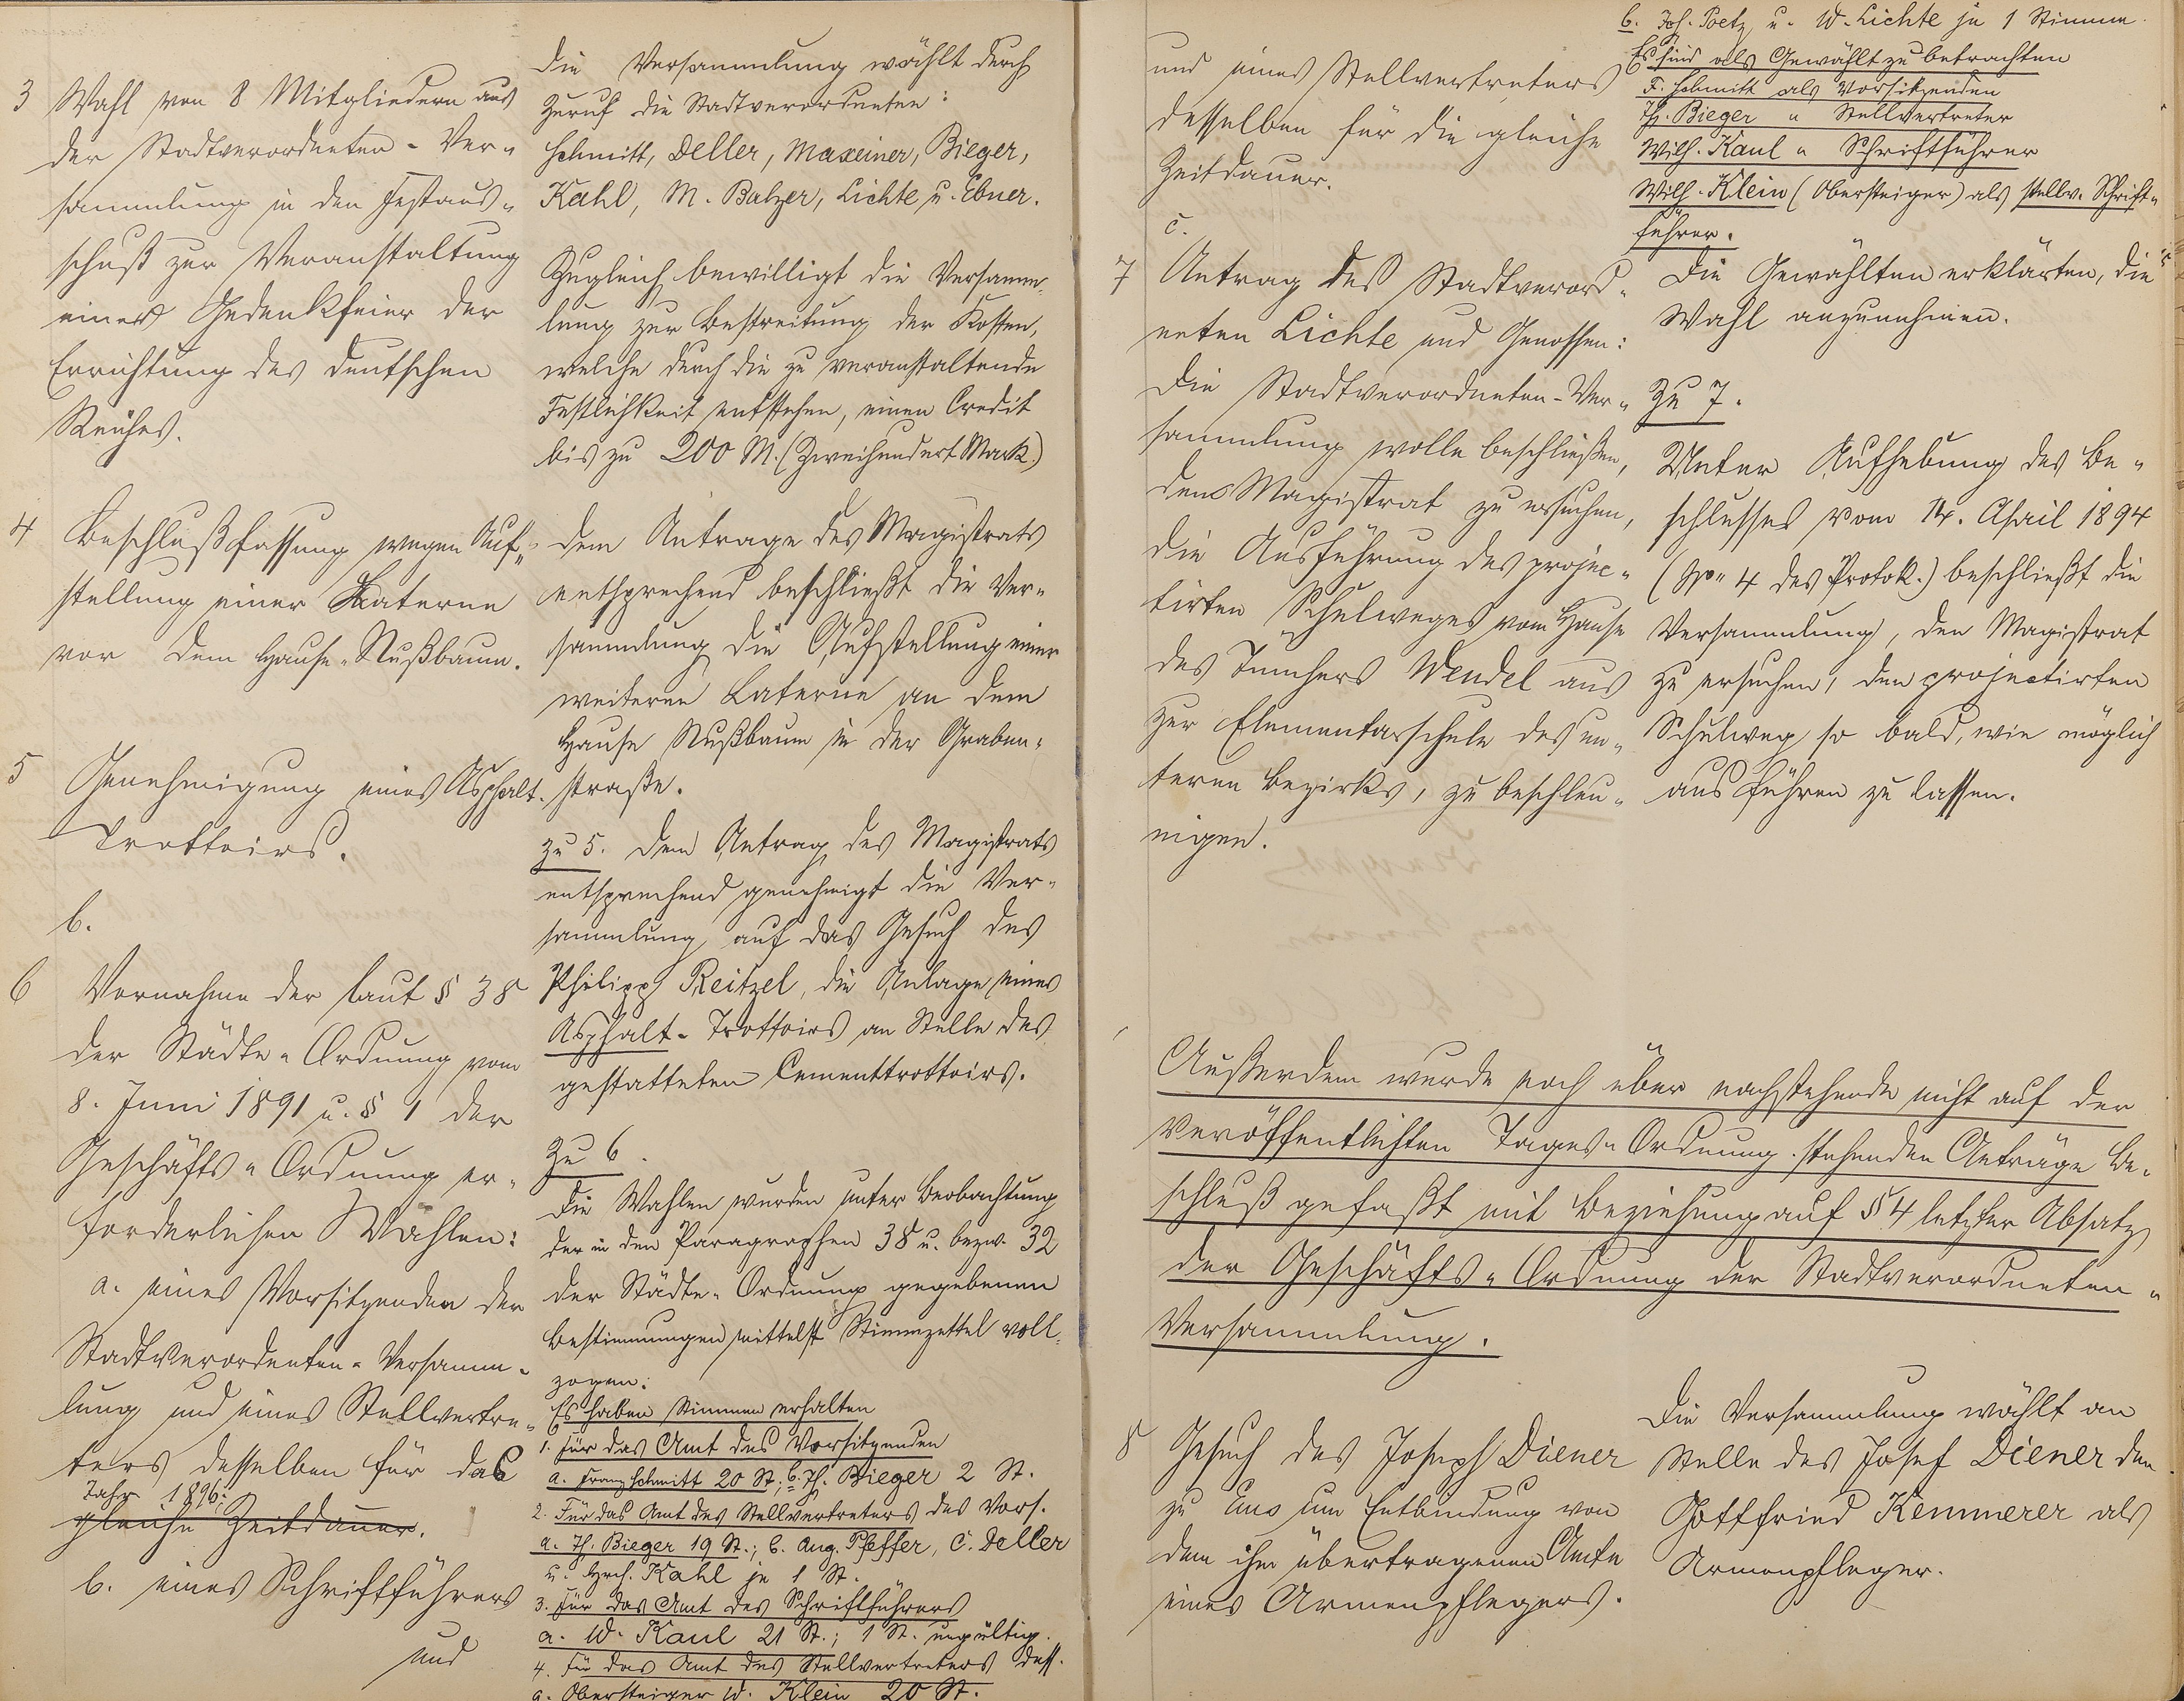 3 Wahl von 8 Mitgliedern aus
der Stadtverordneten-Ver-
sammlung in den Festaus-
schuß zur Veranstaltung
einer Gedenkfeier der
Errichtung des deutschen
Reiches.
4 Beschlußfassung wegen Auf-
stellung einer Laterne
vor dem Hause Nußbaum.
5 Genehmigung eines Asphalt-
Trottoirs.
b.
6 Vornahme der laut § 38
der Städte-Ordnung vom
8. Juni 1891 u. § 1 der
Geschäfts-Ordnung er-
forderlichen Wahlen:
a. eines Vorsitzenden der
Stadtverordneten-Versamm-
lung und eines Stellvertre-
ters desselben für das
Jahr 1896;
gleiche Zeitdauer.
b. eines Schriftführers
und
Die Versammlung wählt durch
Zuruf die Stadtverordneten:
Schmitt, Deller, Maxeiner, Bieger,
Kahl, M. Balzer, Lichte u. Ebner.
Zugleich bewilligt die Versamm-
lung zur Bestreitung der Kosten,
welche durch die zu veranstaltende
Festlichkeit entstehen, einen Credit
bis zu 200 M. (Zweihundert Mark.)
Dem Antrage des Magistrats
entsprechend beschließt die Ver-
sammlung die Aufstellung einer
weiteren Laterne an dem
Hause Nußbaum in der Graben-
straße.
Zu 5. Dem Antrag des Magistrats
entsprechend genehmigt die Ver-
sammlung, auf das Gesuch des
Philipp Reitzel, die Anlage eines
Asphalt-Trottoirs an Stelle des
gestatteten Cementtrottoirs.
Zu 6.
Die Wahlen wurden unter Beobachtung
der in den Paragraphen 38 u. bezw. 32
der Städte-Ordnung gegebenen
Bestimmungen mittelst Stimmzettel voll-
zogen:
Es haben Stimmen erhalten
1. für das Amt des Vorsitzenden
a. Franz Schmitt 20 St.; b. Th. Bieger 2 St.
2. Für das Amt des Stellvertreters des Vors.
a. Th. Bieger 19 St.; b. Aug. Pfeffer, C. Deller
u. Hrch. Kahl je 1 St.
3. für das Amt des Schriftführers
a. W. Kaul 21 St.; 1 St. ungültig.
4. für das Amt des Stellvertreters dess.
a. Obersteiger W. Klein 20 St.
und eines Stellvertreters
desselben für die gleiche
Zeitdauer.
c.
7 Antrag des Stadtverord-
neten Lichte und Genossen:
Die Stadtverordneten-Ver-
sammlung wolle beschließen,
den Magistrat zu ersuchen,
die Ausführung des projec-
tirten Schulweges vom Hause
des Tünchers Wendel aus
zur Elementarschule des un-
teren Bezirks, zu beschleu-
nigen.
b. Jos. Poetz u. W. Lichte je 1 Stimme.
Es sind als Gewählt zu betrachten
F. Schmitt als Vorsitzenden
Th. Bieger " Stellvertreter
Wilh. Kaul " Schriftführer
Wilh. Klein (Obersteiger) als stellv. Schrift-
führer.
Die Gewählten erklärten, die
Wahl anzunehmen.
Zu 7.
Unter Aufhebung des Be-
schlusses vom 14. April 1894
(No 4 des Protok.) beschließt die
Versammlung, den Magistrat
zu ersuchen, den projectirten
Schulweg so bald, wie möglich
ausführen zu lassen.
Außerdem wurde noch über nachstehende nicht auf der
veröffentlichten Tages-Ordnung stehenden Anträge Be-
schluß gefaßt mit Beziehung auf § 4 letzter Absatz
der Geschäfts-Ordnung der Stadtverordneten-
Versammlung.
8 Gesuch des Joseph Diener
zu Ems um Entbindung von
dem ihm übertragenen Amte
eines Armenpflegers.
Die Versammlung wählt an
Stelle des Josef Diener den
Gottfried Kemmerer als
Armenpfleger.